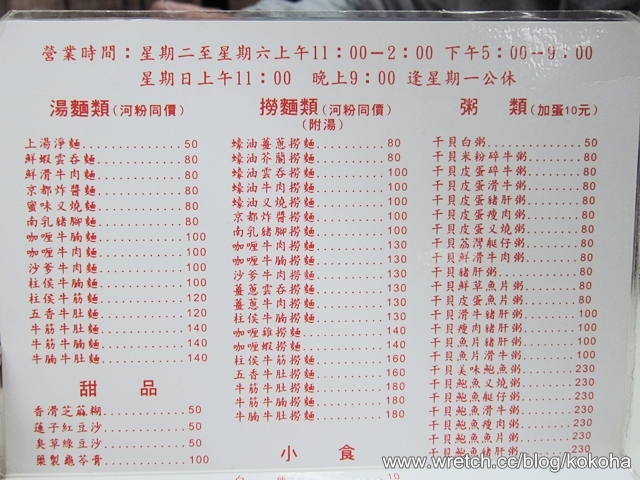 營業時間：星期二至星期六上午11：00－2：00 下午5：00－9：00
星期日上午11：00 晚上9：00 逢星期一公休
湯麵類(河粉同價)
上湯淨麵 50
鮮蝦雲吞麵 80
鮮滑牛肉麵 80
京都炸醬麵 80
蜜味叉燒麵 80
南乳豬腳麵 80
咖喱牛腩麵 100
咖喱牛肉麵 100
沙爹牛肉麵 100
柱侯牛腩麵 100
柱侯牛筋麵 120
五香牛肚麵 120
牛筋牛肚麵 140
牛筋牛腩麵 140
牛腩牛肚麵 140
甜品
香滑芝麻糊 50
蓮子紅豆沙 50
臭草綠豆沙 50
藥製龜苓膏 100
撈麵類(河粉同價)
(附湯)
蠔油薑蔥撈麵 80
蠔油芥蘭撈麵 80
蠔油雲吞撈麵 100
蠔油牛肉撈麵 100
蠔油叉燒撈麵 100
京都炸醬撈麵 100
南乳豬腳撈麵 100
咖喱牛肉撈麵 130
咖喱牛腩撈麵 130
沙爹牛肉撈麵 130
薑蔥雲吞撈麵 130
薑蔥牛肉撈麵 130
柱侯牛腩撈麵 130
咖喱雞撈麵 140
咖喱蝦撈麵 140
柱侯牛筋撈麵 160
五香牛肚撈麵 160
牛筋牛肚撈麵 180
牛筋牛腩撈麵 180
牛腩牛肚撈麵 180
小食
粥類(加蛋10元)
干貝白粥 50
干貝米粉碎牛粥 80
干貝皮蛋碎牛粥 80
干貝皮蛋滑牛粥 80
干貝皮蛋豬肝粥 80
干貝皮蛋瘦肉粥 80
干貝皮蛋叉燒粥 80
干貝荔灣艇仔粥 80
干貝鮮滑牛肉粥 80
干貝豬肝粥 80
干貝鮮草魚片粥 80
干貝皮蛋魚片粥 80
干貝滑牛豬肝粥 100
干貝瘦肉豬肝粥 100
干貝魚片豬肝粥 100
干貝魚片滑牛粥 100
干貝美味鮑魚粥 230
干貝鮑魚叉燒粥 230
干貝鮑魚艇仔粥 230
干貝鮑魚滑牛粥 230
干貝鮑魚瘦肉粥 230
干貝鮑魚魚片粥 230
干貝鮑魚豬肝粥 230
www.wretch.cc/blog/kokoha